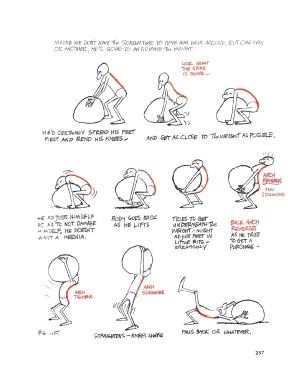 MAYBE WE DON'T HAVE THE SCREEN TIME TO HAVE HIM WALK AROUND, BUT ONE WAY
OR ANOTHER, HE'S GOING TO ANTICIPATE THE WEIGHT.
LOOK WHAT
THE SPINE
IS DOING...
HE'D CERTAINLY SPREAD HIS FEET
FIRST AND BEND HIS KNEES -
AND GET AS CLOSE TO THE WEIGHT AS POSSIBLE,
ARCH
REVERSES
AND
STRAIGHTENS
HE ADJUSTS HIMSELF
SO AS TO NOT DAMAGE
HIMSELF, HE DOESN'T
WANT A HERNIA.
BODY GOES BACK
AS HE LIFTS
TRIES TO GET
UNDERNEATH THE
WEIGHT - MIGHT
ADJUST FEET IN
LITTLE BITS -
ERRATICALLY
BACK ARCH
REVERSES
AS HE TRIES
TO GET A
PURCHASE -
ARCH
TIGHTENS
ARCH
STRAIGHTENS
BIG LIFT
STRAIGHTENS - KNEES SHAKE
FALLS BACK OR WHATEVER.
257